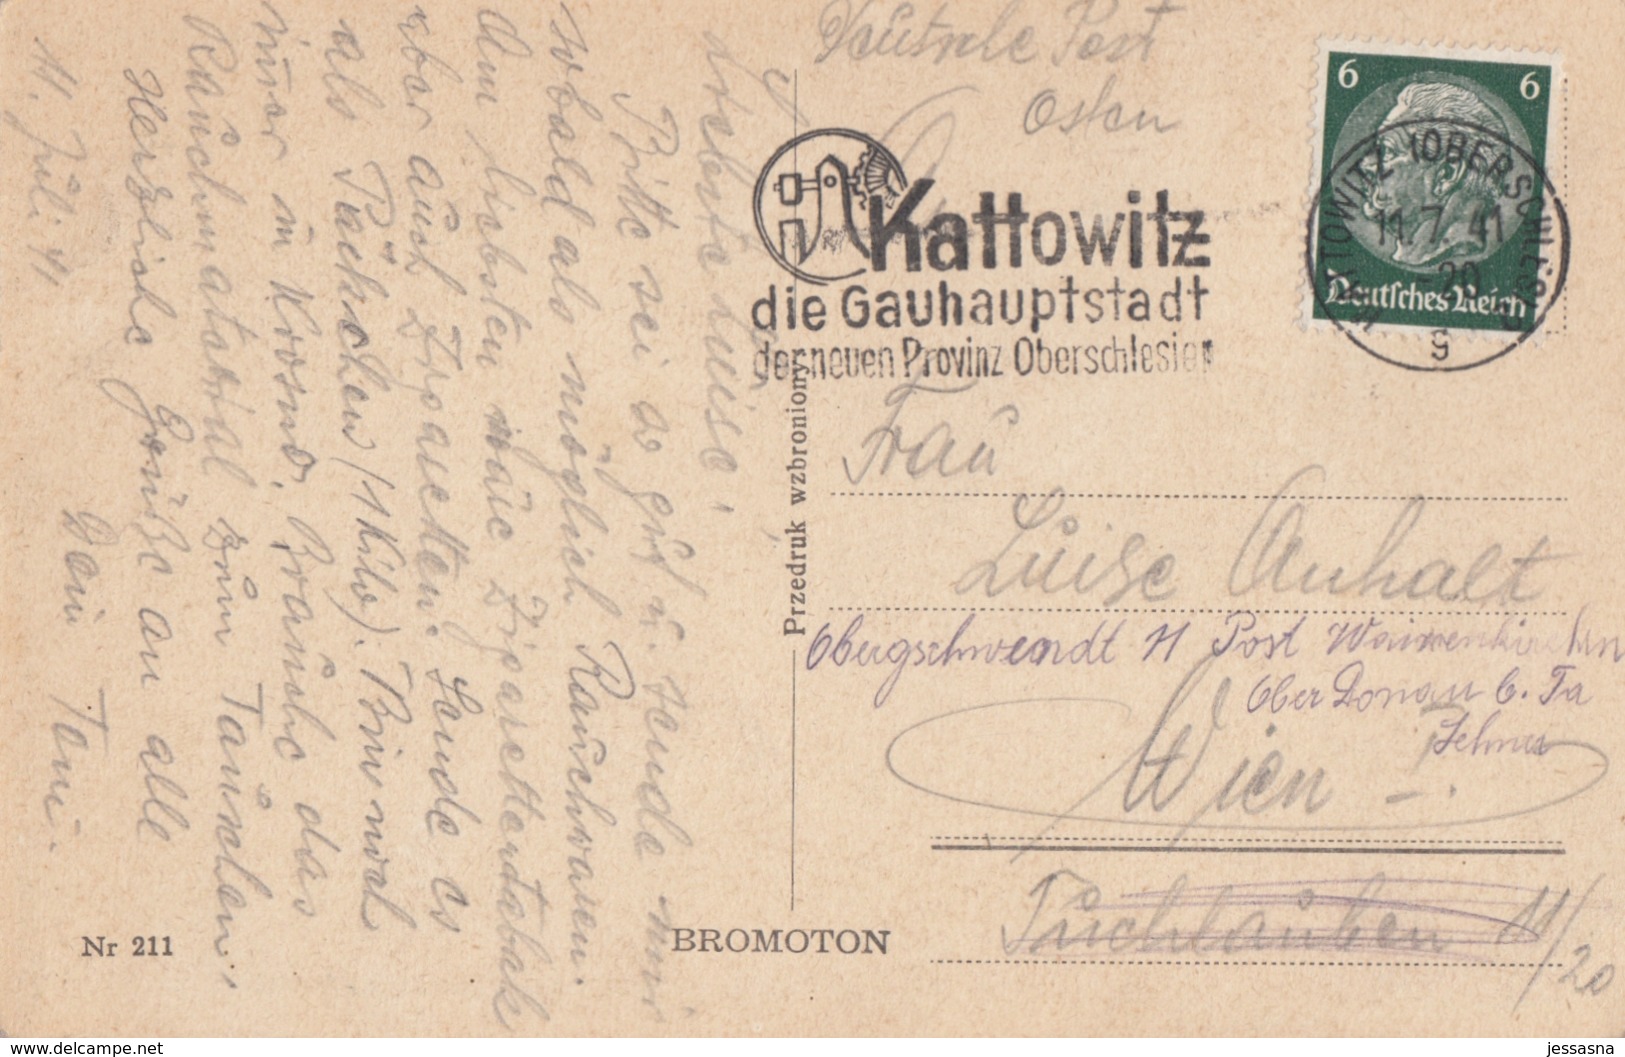 Deutsche Post
Osten
6 6
Deutsches Reich
KATTOWITZ (OBERSCHLES)
11.7.41
20
g
Kattowitz
die Gauhauptstadt
der neuen Provinz Oberschlesien
Frau
Luise Anhalt
Obergschwendt 11 Post Waizenkirchen
Ober Donau b. Fa
Wien
Tuchlauben 11/20
Przedruk wzbroniony
BROMOTON
Nr 211
Liebste Luise!
Bitte sei so gut u. sende mir
sobald als möglich Rauchwaren.
Am liebsten wäre Zigarettentabak
aber auch Zigaretten. Sende es
als Päckchen (1 Kilo). Bin mal
in Krosno. Brauche das
Rauchmaterial zum Tauschen.
Herzliche Grüße an alle
Dein Toni.
11. Juli 41
jessasna